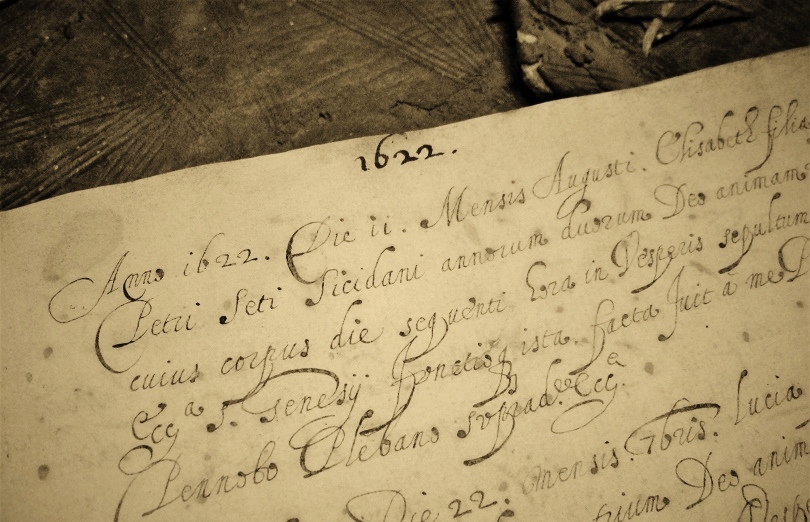 1622.
Anno 1622. Die ii. Mensis Augusti. Elisabeth filia
Petri Seti Sicidani annorum duorum Deo animam
cuius corpus die sequenti hora in Vesperis sepultum
Eccᵃ S. Senesij ista facta fuit à me P
Pennobo Plebano suprad. Eccᵉ.
Die 22. mensis. 7bris. Lucia
Deo anim